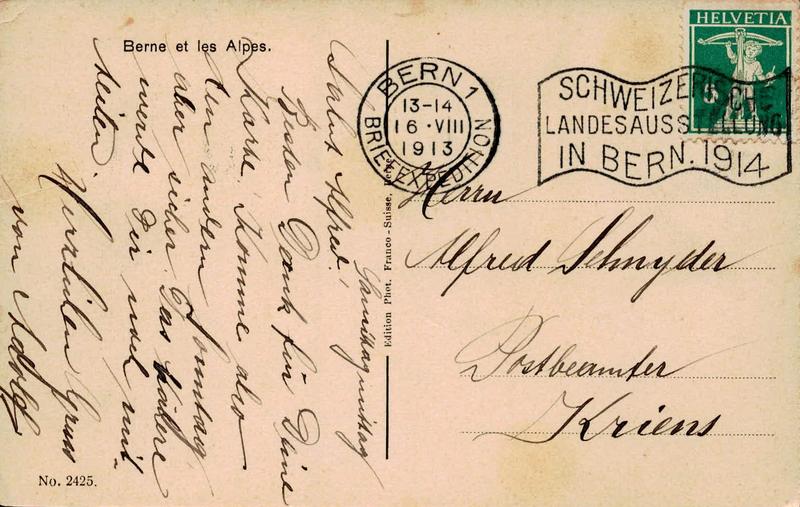 Berne et les Alpes.
HELVETIA
5
BERN 1
13-14
16·VIII
1913
BRIEFEXPEDITION
SCHWEIZERISCHE
LANDESAUSSTELLUNG
IN BERN. 1914
Samstagmittag
Salut Alfred!
Besten Dank für Deine
Karte. Komme also
den andern Sonntag
aber sicher. Das nähere
werde Dir noch mit-
teilen.
Herzlichen Gruss
von Adolf
Edition Phot. Franco-Suisse, Berne
Herrn
Alfred Schnyder
Postbeamter
Kriens
No. 2425.